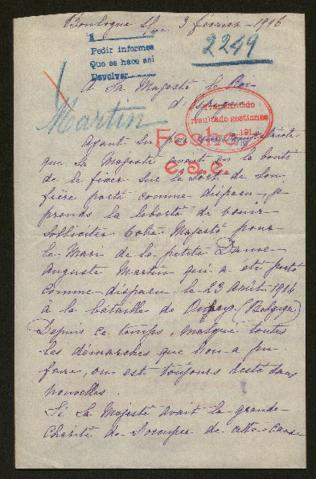 Boulogne S/ 3 février 1916
2249
Pedir informes
Que se hace así
Devolver
A Sa Majesté le Roi
d'
resultado gestiones
Martin
Fecha
C.S.C.
Ayant su
que Sa Majesté avait eu la bonté
de le fixer sur le sort de son
frère porté comme disparu, je
prends la liberté de venir
solliciter Votre Majesté pour
le Mari de la petite Dame
Auguste Martin qui a été porté
comme disparu le 23 Août 1914
à la bataille de (Belgique)
Depuis ce temps, malgré toutes
les démarches que l'on a pu
faire, on est toujours resté sans
nouvelles.
Si Sa Majesté avait la grande
Charité de s'occuper de cette cause